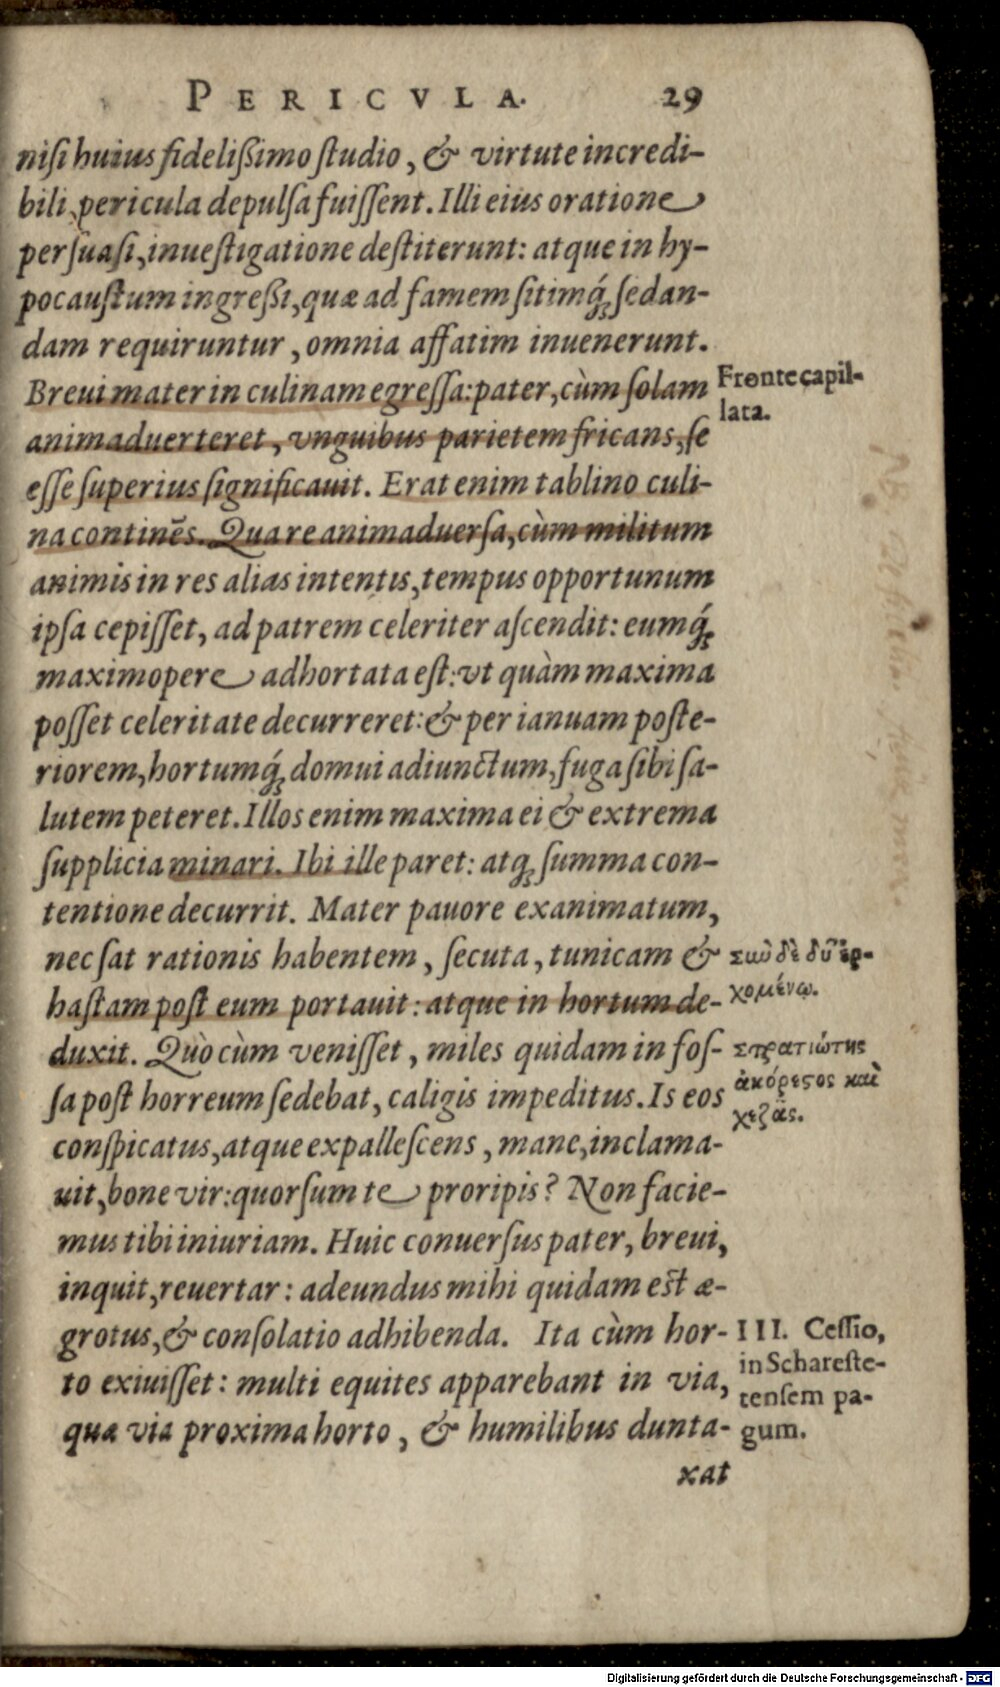 PERICVLA. 29
niſi huius fidelißimo ſtudio, & virtute incredi-
bili, pericula depulſa fuiſſent. Illi eius oratione
perſuaſi, inueſtigatione deſtiterunt: atque in hy-
pocauſtum ingreßi, quæ ad famem ſitimq́; ſedan-
dam requiruntur, omnia affatim inuenerunt.
Breui mater in culinam egreſſa: pater, cùm ſolam
animaduerteret, vnguibus parietem fricans, ſe
eſſe ſuperius ſignificauit. Erat enim tablino culi-
na continēs. Quare animaduerſa, cùm militum
animis in res alias intentis, tempus opportunum
ipſa cepiſſet, ad patrem celeriter aſcendit: eumq́;
maximopere adhortata eſt: vt quàm maxima
poſſet celeritate decurreret: & per ianuam poſte-
riorem, hortumq́; domui adiunctum, fuga ſibi ſa-
lutem peteret. Illos enim maxima ei & extrema
ſupplicia minari. Ibi ille paret: atq; ſumma con-
tentione decurrit. Mater pauore exanimatum,
nec ſat rationis habentem, ſecuta, tunicam &
haſtam poſt eum portauit: atque in hortum de-
duxit. Quò cùm veniſſet, miles quidam in foſ-
ſa poſt horreum ſedebat, caligis impeditus. Is eos
conſpicatus, atque expalleſcens, mane, inclama-
uit, bone vir: quorſum te proripis? Non facie-
mus tibi iniuriam. Huic conuerſus pater, breui,
inquit, reuertar: adeundus mihi quidam est æ-
grotus, & conſolatio adhibenda. Ita cùm hor-
to exiuiſſet: multi equites apparebant in via,
qua via proxima horto, & humilibus dunta-
xat
Fronte capil-
lata.
ἐρ-
χομένῳ.
στρατιώτης
ἀκόρεστος καὶ
χεζᾶς.
III. Ceſſio,
in Schareſte-
tenſem pa-
gum.
Digitalisierung gefördert durch die Deutsche Forschungsgemeinschaft - DFG